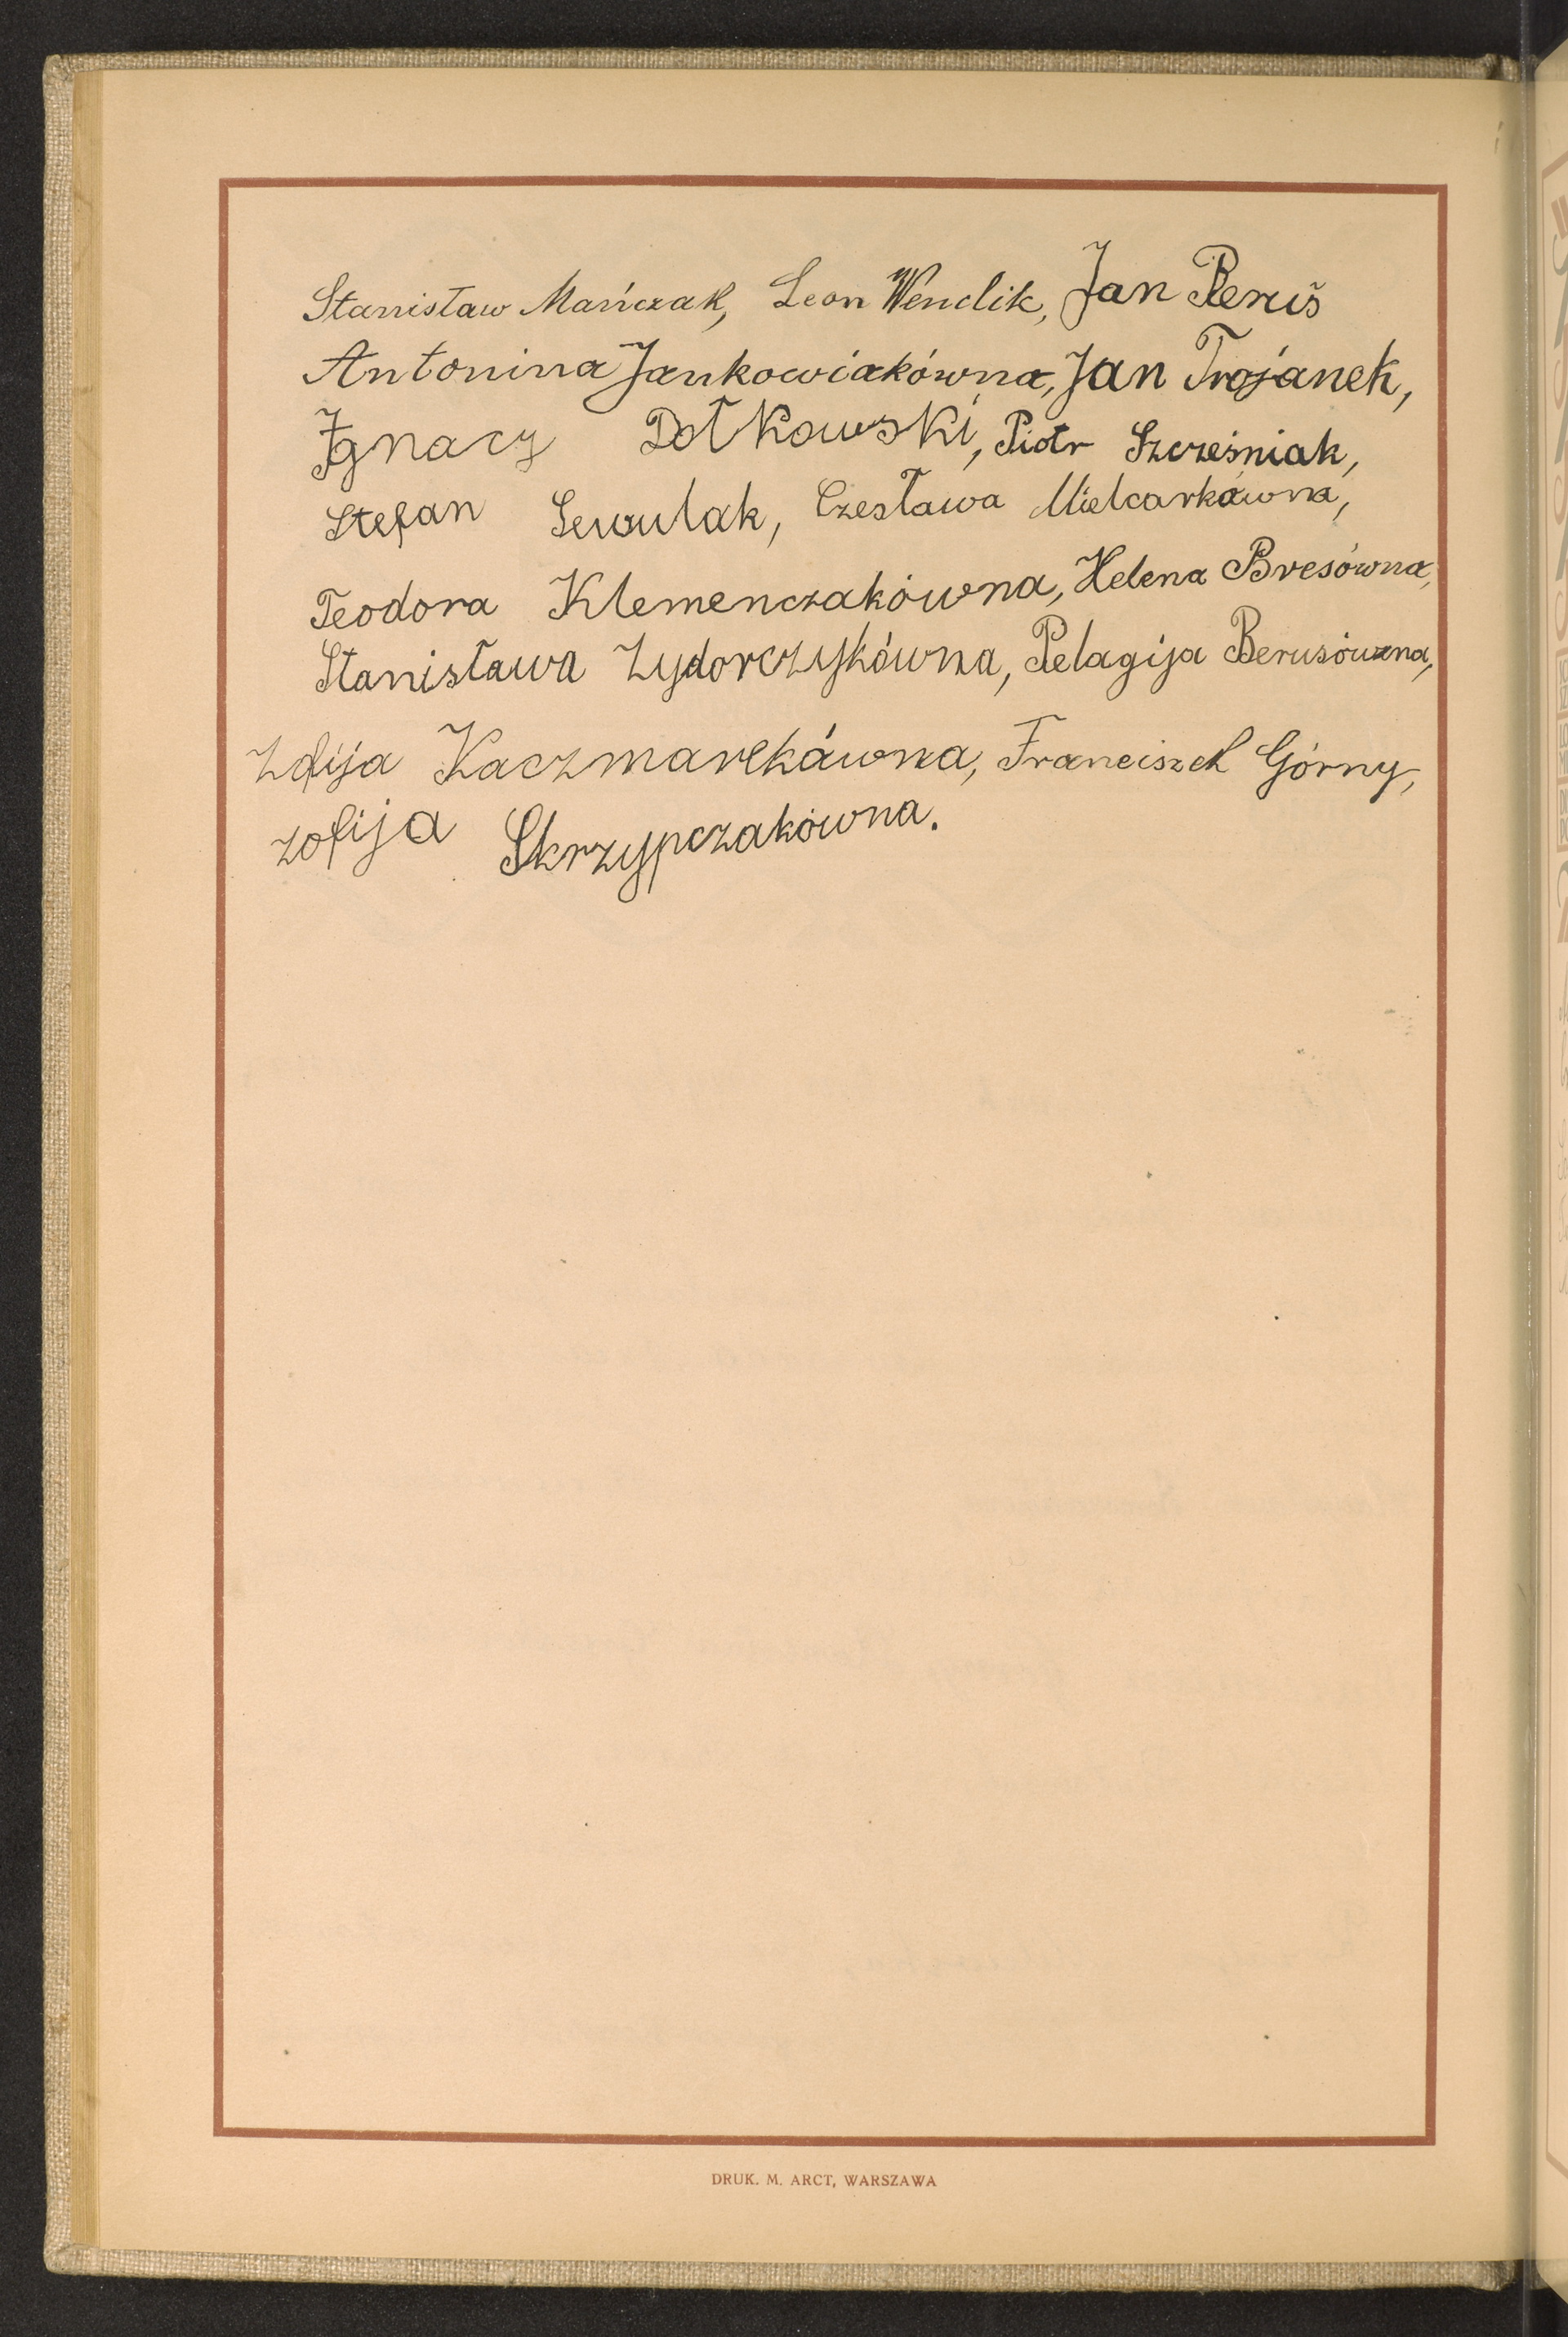 Stanisław Mańczak, Leon Wendlik, Jan Beruś
Antonina Jankowiakówna, Jan Trojanek,
Ignacy Dotkowski, Piotr Szcześniak,
Stefan Sewulak, Czesława Mielcarkówna,
Teodora Klemenczakówna, Helena Bresówna,
Stanisława Zydorczykówna, Pelagija Berusówna,
Zofija Kaczmarekówna, Franciszek Górny,
Zofija Skrzypczakówna.
DRUK. M. ARCT, WARSZAWA